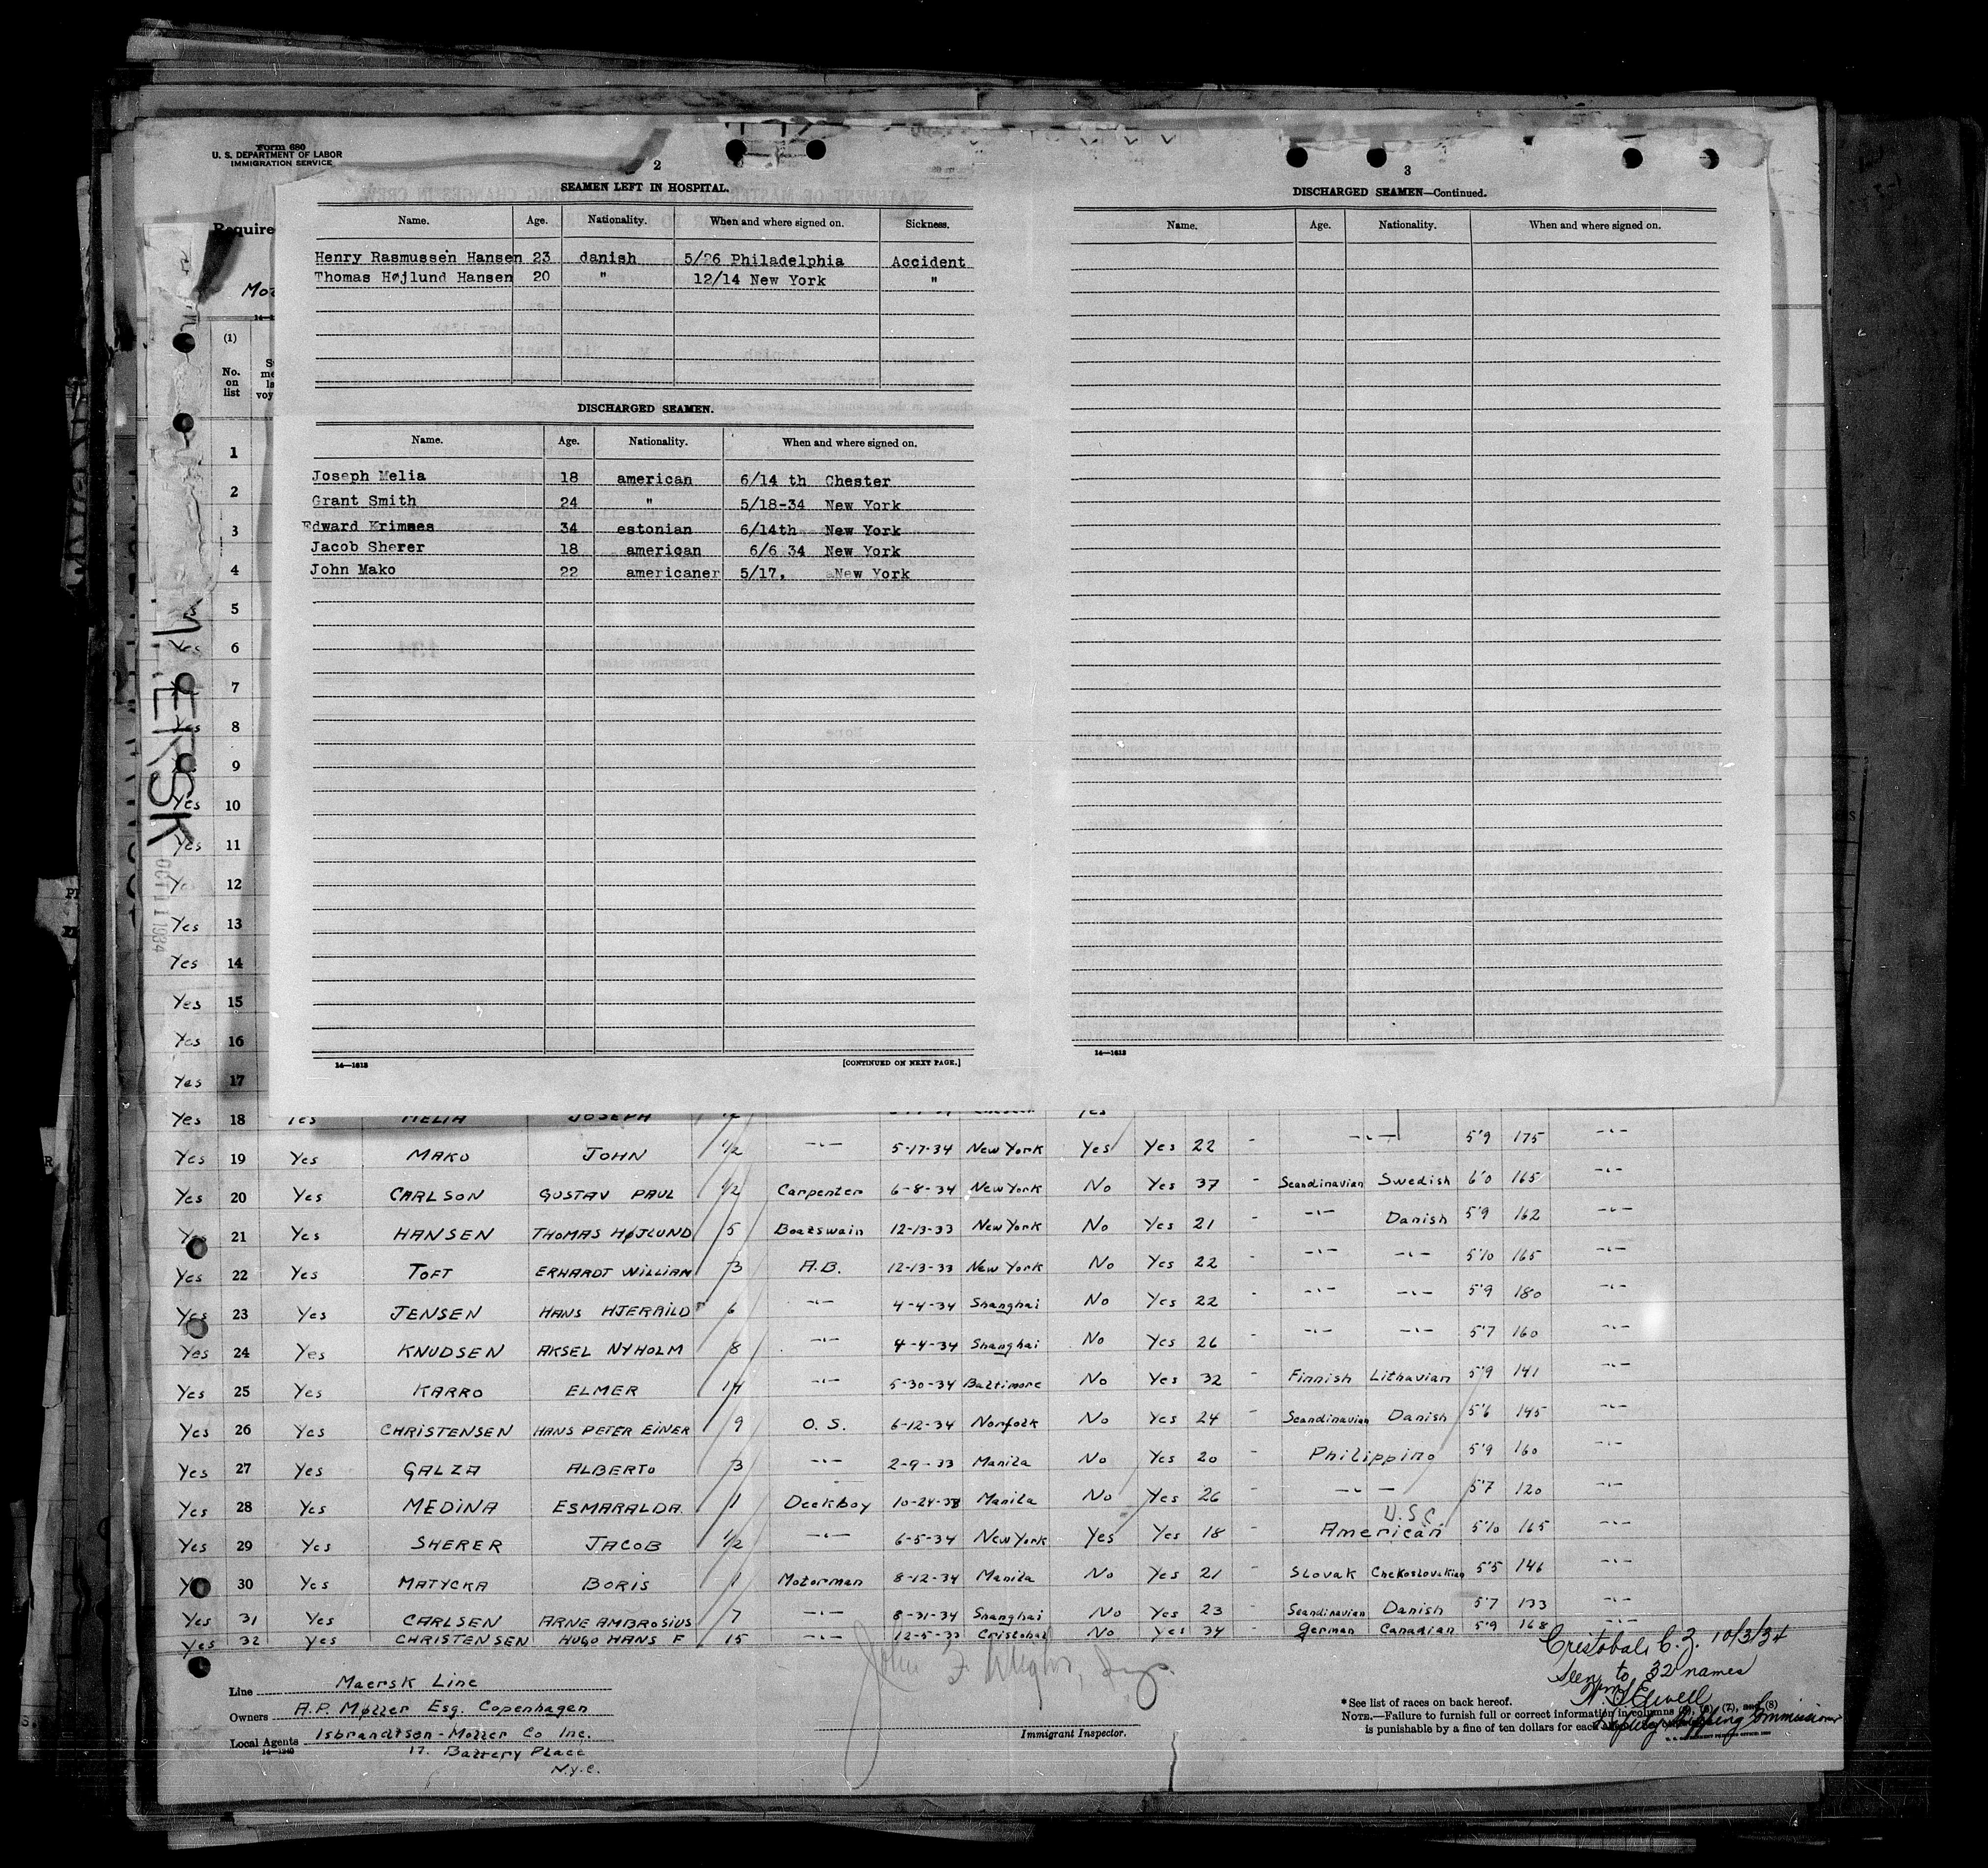 Form 680
U. S. DEPARTMENT OF LABOR
IMMIGRATION SERVICE
Require
(1)
No.
on
list
2
SEAMEN LEFT IN HOSPITAL.
Name. Age. Nationality. When and where signed on. Sickness.
Henry Rasmussen Hansen 23 danish 5/26 Philadelphia Accident
Thomas Højlund Hansen 20 " 12/14 New York "
DISCHARGED SEAMEN.
Name. Age. Nationality. When and where signed on.
Joseph Melia 18 american 6/14 th Chester
Grant Smith 24 " 5/18-34 New York
Edward Krimses 34 estonian 6/14th New York
Jacob Sherer 18 american 6/6 34 New York
John Mako 22 americaner 5/17, aNew York
14—1613 [CONTINUED ON NEXT PAGE.]
3
DISCHARGED SEAMEN—Continued.
Name. Age. Nationality. When and where signed on.
14—1613
ERSK
OCT 11 1934
1
2
3
4
5
Yes 6
7
Yes 8
9
Yes 10
Yes 11
12
Yes 13
Yes 14
Yes 15
Yes 16
Yes 17
Yes 18 Yes MELIA JOSEPH Yes
Yes 19 Yes MAKO JOHN 1/2 -"- 5-17-34 New York Yes Yes 22 - -"- 5'9 175 -"-
Yes 20 Yes CARLSON GUSTAV PAUL 1/2 Carpenter 6-8-34 New York No Yes 37 - Scandinavian Swedish 6'0 165 -"-
Yes 21 Yes HANSEN THOMAS HØJLUND 5 Boatswain 12-13-33 New York No Yes 21 - -"- Danish 5'9 162 -"-
Yes 22 Yes TOFT ERHARDT WILLIAM 3 A.B. 12-13-33 New York No Yes 22 - -"- -"- 5'10 165 -"-
Yes 23 Yes JENSEN HANS HJERRILD 6 -"- 4-4-34 Shanghai No Yes 22 - -"- -"- 5'9 180 -"-
Yes 24 Yes KNUDSEN AKSEL NYHOLM 8 -"- 4-4-34 Shanghai No Yes 26 - -"- -"- 5'7 160 -"-
Yes 25 Yes KARRO ELMER 14 -"- 5-30-34 Baltimore No Yes 32 - Finnish Lithavian 5'9 141 -"-
Yes 26 Yes CHRISTENSEN HANS PETER EINER 9 O.S. 6-12-34 Norfolk No Yes 24 - Scandinavian Danish 5'6 145 -"-
Yes 27 Yes GALZA ALBERTO 3 -"- 2-9-33 Manila No Yes 20 - Philippino 5'9 160 -"-
Yes 28 Yes MEDINA ESMARALDA. 1 Deckboy 10-24-33 Manila No Yes 26 - -"- 5'7 120 -"-
U.S.C.
Yes 29 Yes SHERER JACOB 1/2 -"- 6-5-34 New York Yes Yes 18 - American 5'10 165 -"-
Yes 30 Yes MATYCKA BORIS 1 Motorman 8-12-34 Manila No Yes 21 - Slovak Chekoslovakian 5'5 146 -"-
Yes 31 Yes CARLSEN ARNE AMBROSIUS 7 -"- 8-31-34 Shanghai No Yes 23 - Scandinavian Danish 5'7 133
Yes 32 Yes CHRISTENSEN HUGO HANS F 15 -"- 12-5-33 Cristobal No Yes 34 - German Canadian 5'9 168 -"-
Cristobal, C.Z. 10/3/34
Seen to 32 names
Deputy Shipping Commissioner
Line Maersk Line
Owners A.P. Møller Esq. Copenhagen
Local Agents Isbrandtsen-Moller Co Inc.
17. Battery Place
N.Y.C.
14—1240
Immigrant Inspector.
*See list of races on back hereof.
NOTE.—Failure to furnish full or correct information in columns (7), and (8)
is punishable by a fine of ten dollars for each